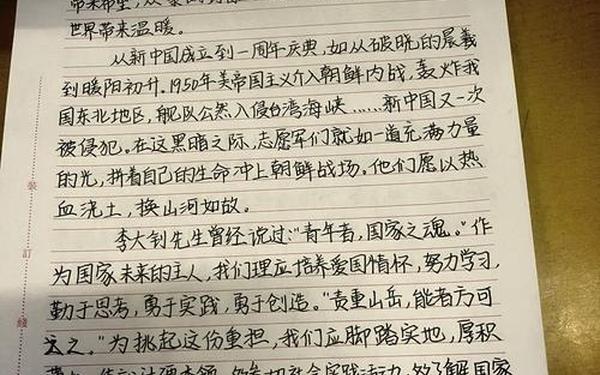 带来希望，从
世界带来温暖。
从新中国成立到一周年庆典，如从破晓的晨羲
到暖阳初升。1950年美帝国主义介入朝鲜内战，轰炸我
国东北地区，舰队公然入侵台湾海峡……新中国又一次
被侵犯。在这黑暗之际，志愿军们就如一道充满力量
的光，拼着自己的生命冲上朝鲜战场。他们愿以热
血浇土，换山河如故。
李大钊先生曾经说过：“青年者，国家之魂。”作
为国家未来的主人，我们理应培养爱国情怀，努力学习，
勤于思考，勇于实践，勇于创造。“责重山岳，能者方可
之。”为挑起这份重担，我们应脚踏实地，厚积
装
訂
線